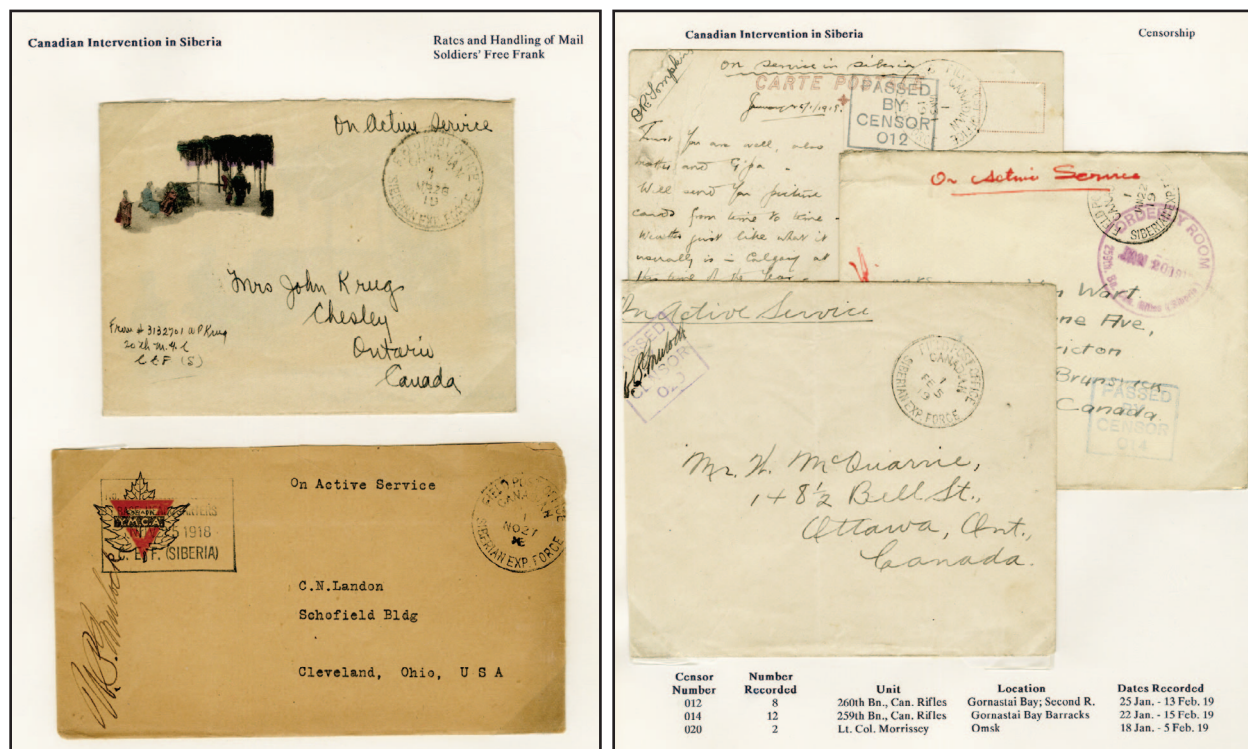 Canadian Intervention in Siberia
Rates and Handling of Mail
Soldiers' Free Frank
On Active Service
FIELD POST OFFICE
CANADIAN
1
19
SIBERIAN EXP. FORCE
Mrs John Krug
Chesley
Ontario
Canada
From # 3132701 W P Krug
20th M.G.C
C E F (S)
On Active Service
Y.M.C.A.
1918
(SIBERIA)
FIELD POST OFFICE
CANADIAN
1
NO 27
SIBERIAN EXP. FORCE
C.N.Landon
Schofield Bldg
Cleveland, Ohio, U S A
Canadian Intervention in Siberia
Censorship
On Service in Siberia.
CARTE POSTALE
PASSED
BY
CENSOR
012
Trust you are well, also
and
Will send you picture
cards from time to time
Weather just like what it
usually is in Calgary at
this time of the year
On Active Service
1
SIBERIAN EXP.
ORDERLY ROOM
Wart
Ave,
Brunswick
Canada.
PASSED
BY
CENSOR
014
On Active Service
PASSED
CENSOR
FIELD POST OFFICE
CANADIAN
1
FE 5
19
SIBERIAN EXP. FORCE
Mr. H. McQuarrie,
148½ Bell St.,
Ottawa, Ont.,
Canada.
Censor Number Number Recorded Unit Location Dates Recorded
012 8 260th Bn., Can. Rifles Gornastai Bay; Second R. 25 Jan. - 13 Feb. 19
014 12 259th Bn., Can. Rifles Gornastai Bay Barracks 22 Jan. - 15 Feb. 19
020 2 Lt. Col. Morrissey Omsk 18 Jan. - 5 Feb. 19